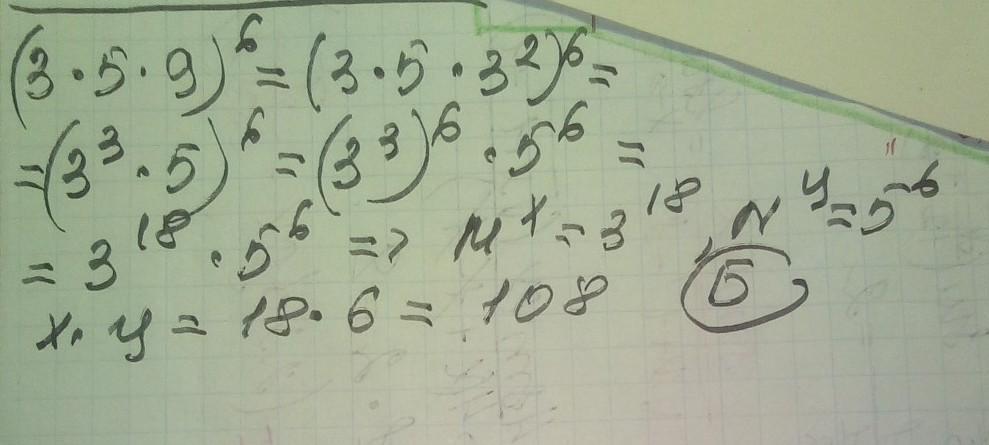 (3·5·9)^6 = (3·5·3^2)^6 =
= (3^3·5)^6 = (3^3)^6 · 5^6 =
= 3^18 · 5^6 => M^x = 3^18, N^y = 5^6
x·y = 18·6 = 108 Б